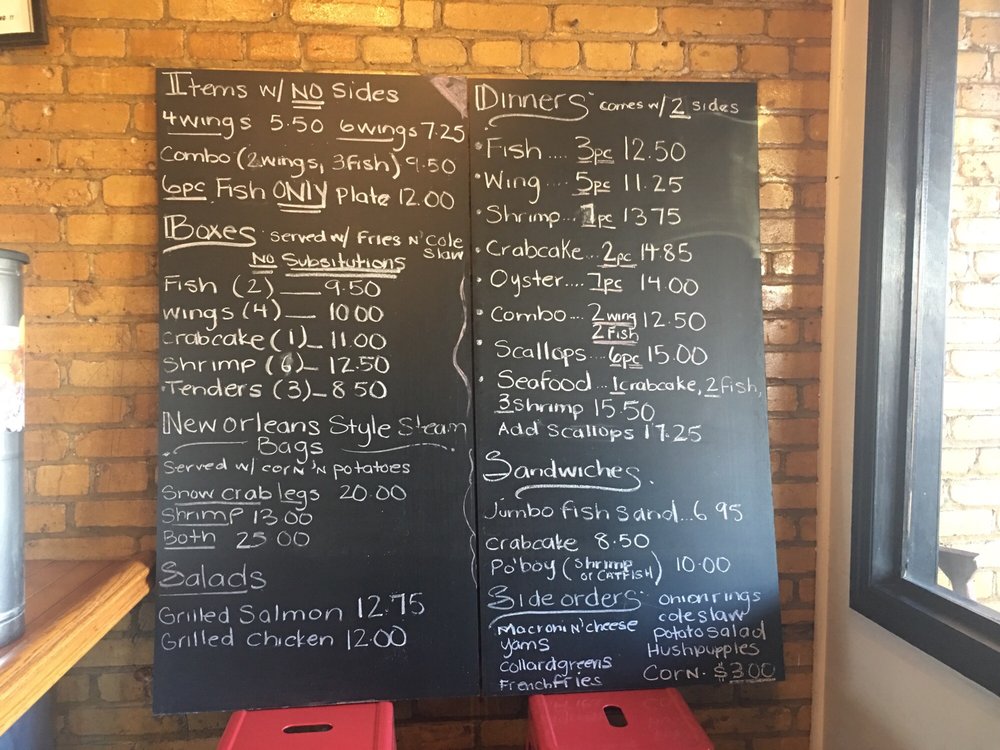 Items w/ NO Sides
4wings 5.50 6wings 7.25
Combo (2wings, 3fish) 9.50
6pc Fish ONLY plate 12.00
Boxes served w/ Fries N' Cole slaw
No Subsitutions
Fish (2) __ 9.50
wings (4) __ 10 00
crabcake (1) _ 11.00
Shrimp (6) _ 12.50
Tenders (3) _ 8 50
New orleans Style Steam
Bags
Served w/ corn 'N potatoes
Snow crab legs 20.00
Shrimp 13 00
Both 25 00
Salads
Grilled Salmon 12.75
Grilled Chicken 12.00
Dinners comes w/ 2 sides
Fish .... 3pc 12.50
Wing .... 5pc 11.25
Shrimp... 7pc 13 75
Crabcake... 2pc 14.85
Oyster.... 7pc 14.00
Combo .. 2 wing 12.50
2 Fish
Scallops.. 6pc 15.00
Seafood ... 1crabcake, 2fish,
3shrimp 15.50
Add Scallops 17.25
Sandwiches
Jumbo fish sand...6 95
crabcake 8.50
Po'boy (Shrimp or CATFISH) 10.00
Side orders
Macroni N' cheese
yams
collardgreens
Frenchfries
onionrings
coleslaw
potatosalad
Hushpupples
Corn. $3.00